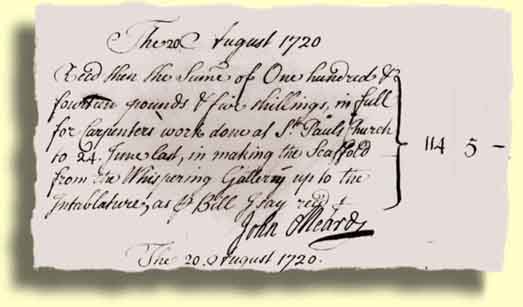 The 20 August 1720
Recd then the Sume of One hundred &
fourteen pounds & five shillings, in full
for Carpenters work done at St. Pauls Church
to 24. June last, in making the Scaffold
from the Whispering Gallery up to the
Intablature, as
Bill I say recd
114 5 —
John Meard
The 20. August 1720.